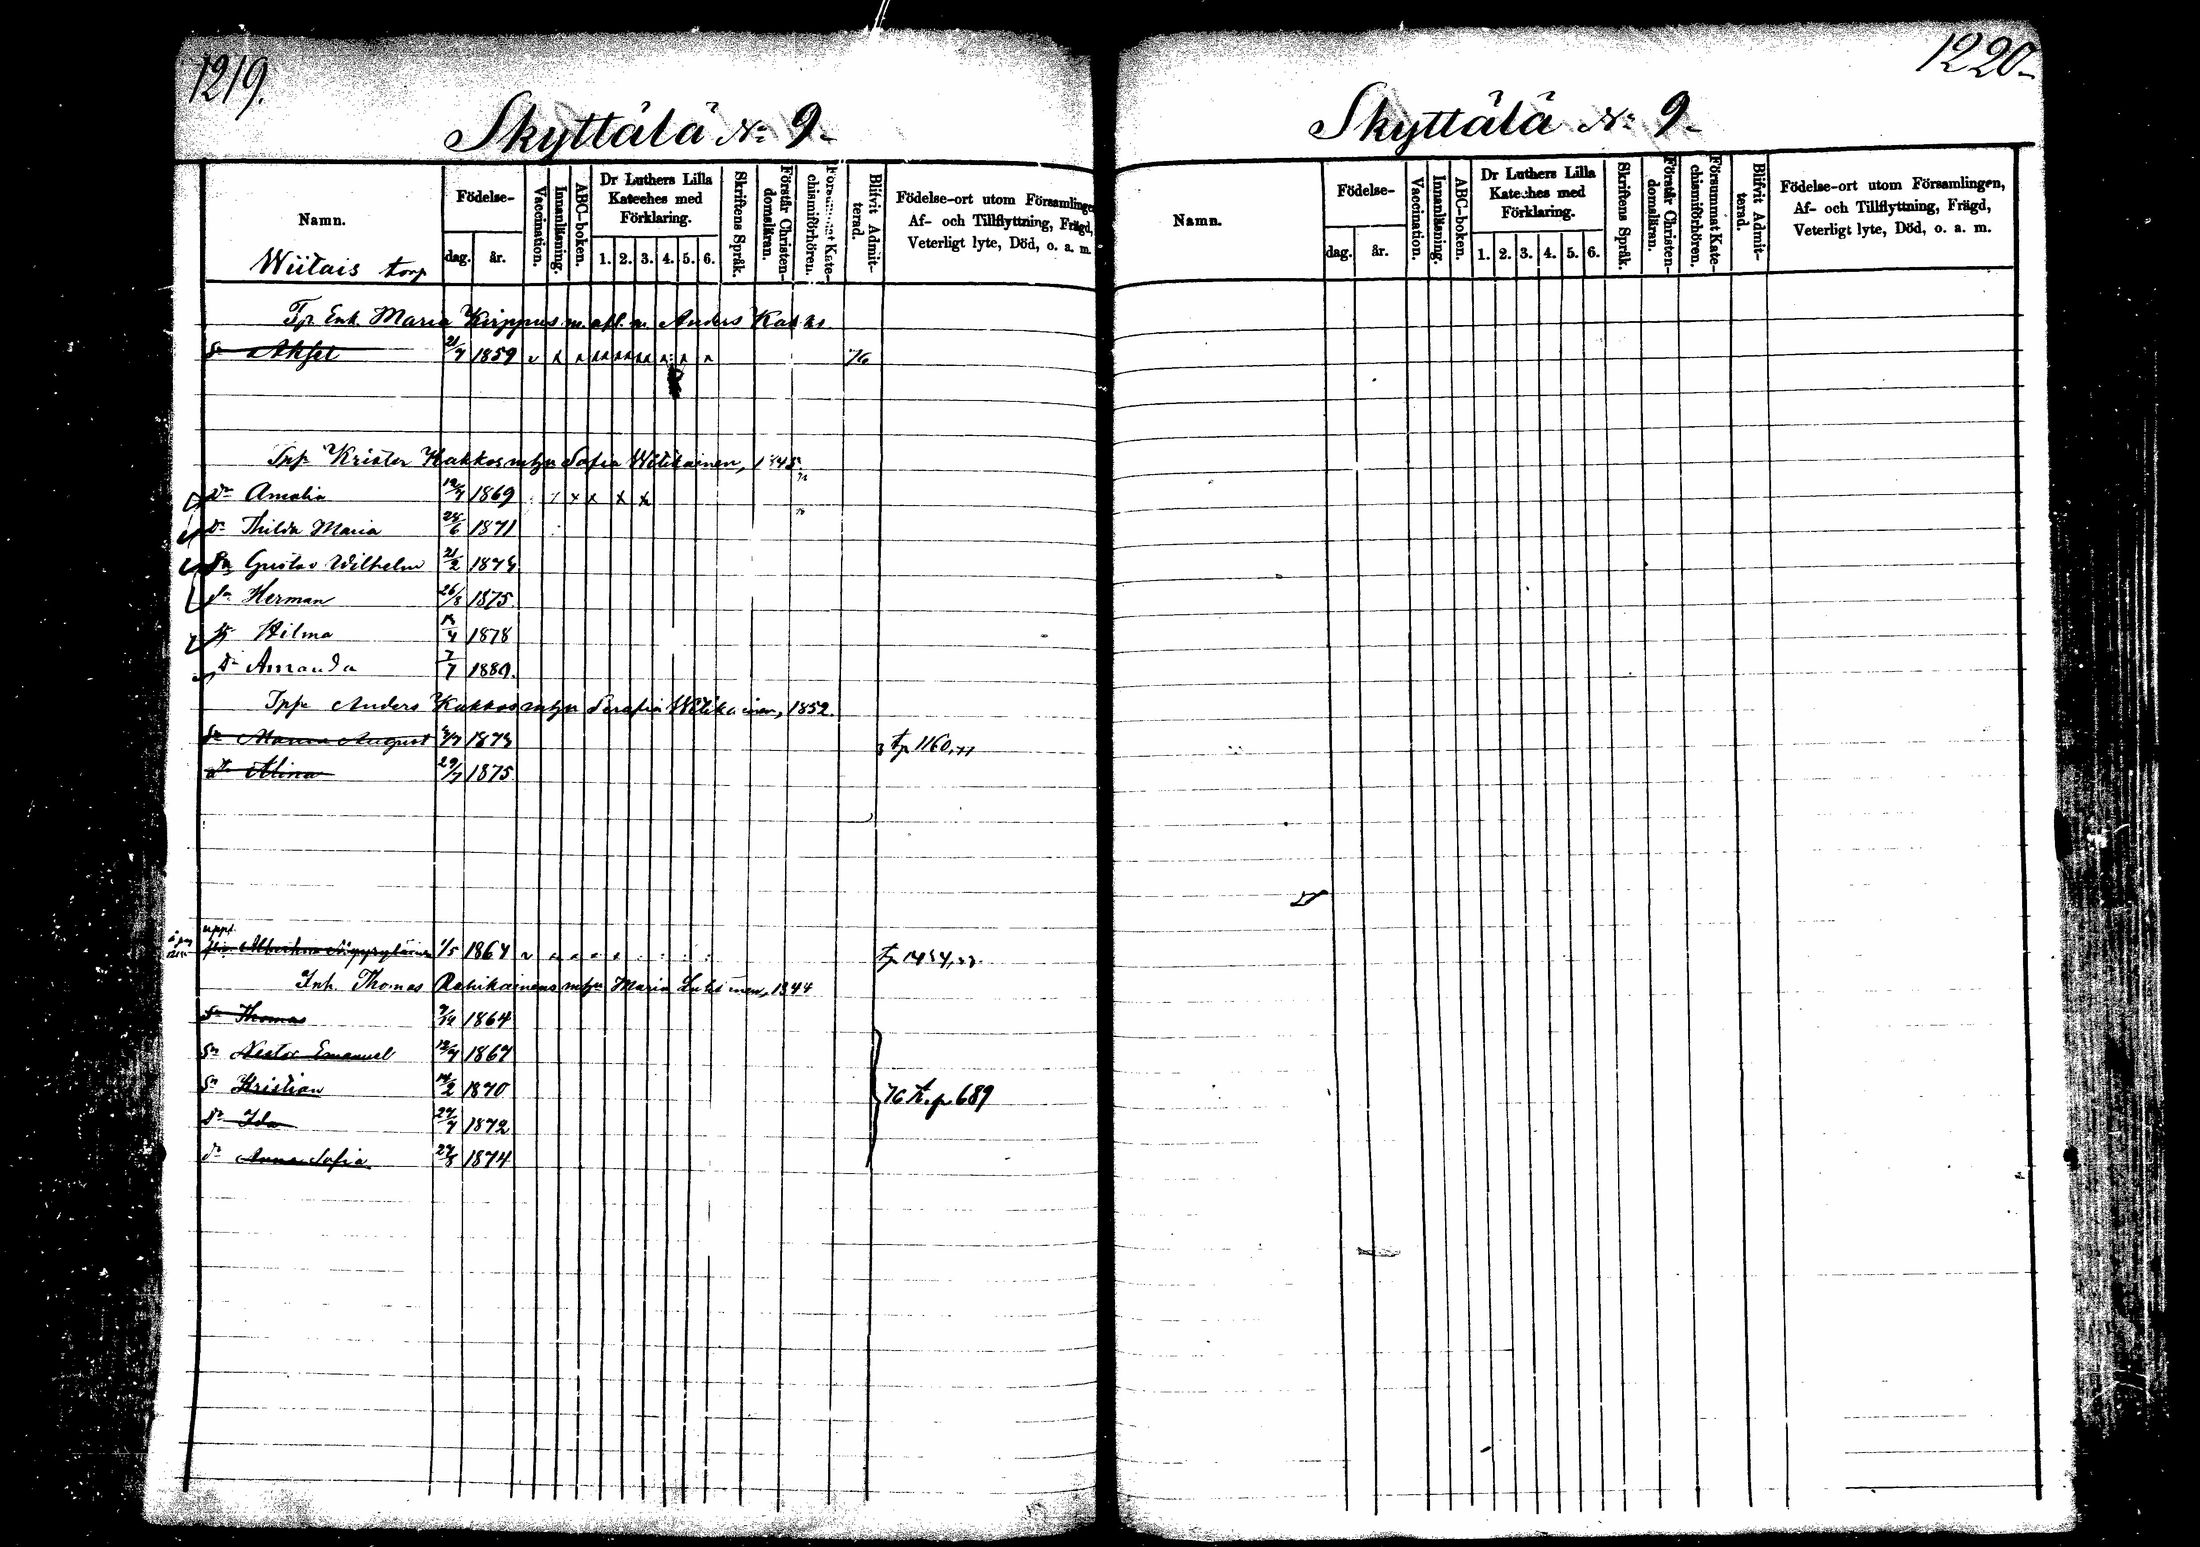 1219.
Skyttälä No 9.
Namn.
Födelse-
dag.
år.
Vaccination.
Innanläsning.
ABC-boken.
Dr Luthers Lilla
Kateches med
Förklaring.
1. 2. 3. 4. 5. 6.
Skriftens Språk.
Förstår Christen-
domsläran.
Försummat Kate-
chismiförhören.
Blifvit Admit-
terad.
Födelse-ort utom Församlingen,
Af- och Tillflyttning, Frägd,
Veterligt lyte, Död, o. a. m.
Wiitais torp
Tp. Enk. Maria Kirppus m. afl. m. Anders
Sn Aksel 21/7 1859 76
Tpp. Krister Kakkos m. hu Sofia Wilikainen, 1845
Dr Amalia 12/7 1869
Dr Thilda Maria 1871
Sn Gustav Wilhelm 21/2
Sn Herman 26/8 1875.
Hilma 1878
Dr Amanda 7/7 1880.
Tpp. Anders Kakkos m. hu Serafia Wilikainen, 1852.
August
Dr Alina 29/7 1875
uppf.
1/5 1867
Inh. Thomas m. hu Maria 1844
Sn Thomas 1864
Sn Nestor Emanuel 12/7 1867
Sn Kristian 1870
Dr Ida 27/7 1872
Dr Anna Sofia 1874
76 t. p. 689
1220
Skyttälä No 9
Namn.
Födelse-
dag.
år.
Vaccination.
Innanläsning.
ABC-boken.
Dr Luthers Lilla
Kateches med
Förklaring.
1. 2. 3. 4. 5. 6.
Skriftens Språk.
Förstår Christen-
domsläran.
Försummat Kate-
chismiförhören.
Blifvit Admit-
terad.
Födelse-ort utom Församlingen,
Af- och Tillflyttning, Frägd,
Veterligt lyte, Död, o. a. m.